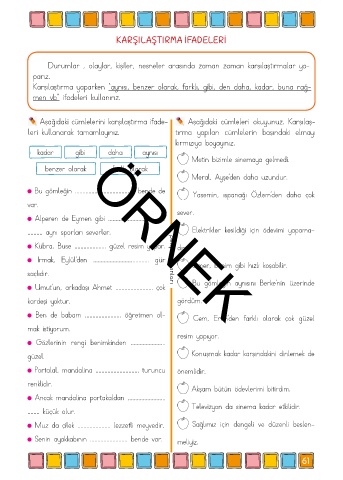 KARŞILAŞTIRMA İFADELERİ
Durumlar , olaylar, kişiler, nesneler arasında zaman zaman karşılaştırmalar ya-
parız.
Karşılaştırma yaparken "aynısı, benzer olarak, farklı, gibi, den daha, kadar, buna rağ-
men vb" ifadeleri kullanırız.
Aşağıdaki cümlelerini karşılaştırma ifade-
leri kullanarak tamamlayınız.
kadar gibi daha aynısı
benzer olarak
Bu gömleğin .................... bende de
var.
Alperen de Eymen gibi
......... aynı sporları severler.
Kübra, Buse .................. güzel resim yapar.
Irmak, Eylül'den .................. gür
saçlıdır.
Umut'un, arkadaşı Ahmet .................. çok
kardeşi yoktur.
Ben de babam .................. öğretmen ol-
mak istiyorum.
Gözlerinin rengi benimkinden ..................
güzel.
Portakal, mandalina .................. turuncu
renklidir.
Ancak mandalina portakaldan ..................
....... küçük olur.
Muz da çilek .................. lezzetli meyvedir.
Senin ayakkabının .................. bende var.
Aşağıdaki cümleleri okuyunuz. Karşılaş-
tırma yapılan cümlelerin başındaki elmayı
kırmızıya boyayınız.
Metin bizimle sinemaya gelmedi.
Meral, Ayşe'den daha uzundur.
Yasemin, ıspanağı Özlem'den daha çok
sever.
Elektrikler kesildiği için ödevimi yapama-
gibi hızlı koşabilir.
Bu gömleğin aynısını Berke'nin üzerinde
gördüm.
Cem, farklı olarak çok güzel
resim yapıyor.
Konuşmak kadar karşındakini dinlemek de
önemlidir.
Akşam bütün ödevlerimi bitirdim.
Televizyon da sinema kadar etkilidir.
Sağlımız için dengeli ve düzenli beslen-
meliyiz.
ÖRNEK
61